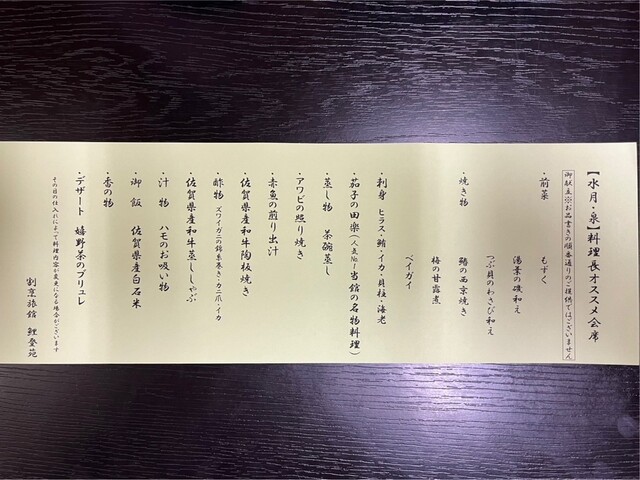 【水月・泉】料理長オススメ会席
御献立※お品書きの順番通りのご提供ではございません
・前菜　もずく
湯葉の磯和え
つぶ貝のわさび和え
・焼き物　鰆の西京焼き
梅の甘露煮
ベイガイ
・刺身　ヒラス・鯛・イカ・貝柱・海老
・茄子の田楽（人気№1当館の名物料理）
・蒸し物　茶碗蒸し
・アワビの照り焼き
・赤魚の煎り出汁
・佐賀県産和牛陶板焼き
・酢物　ズワイガニの錦糸巻き・カニ爪・イカ
・佐賀県産和牛蒸ししゃぶ
・汁物　ハモのお吸い物
・御飯　佐賀県産白石米
・香の物
・デザート　嬉野茶のブリュレ
その日の仕入れによって料理内容が変更になる場合がございます
割烹旅館　鯉登苑